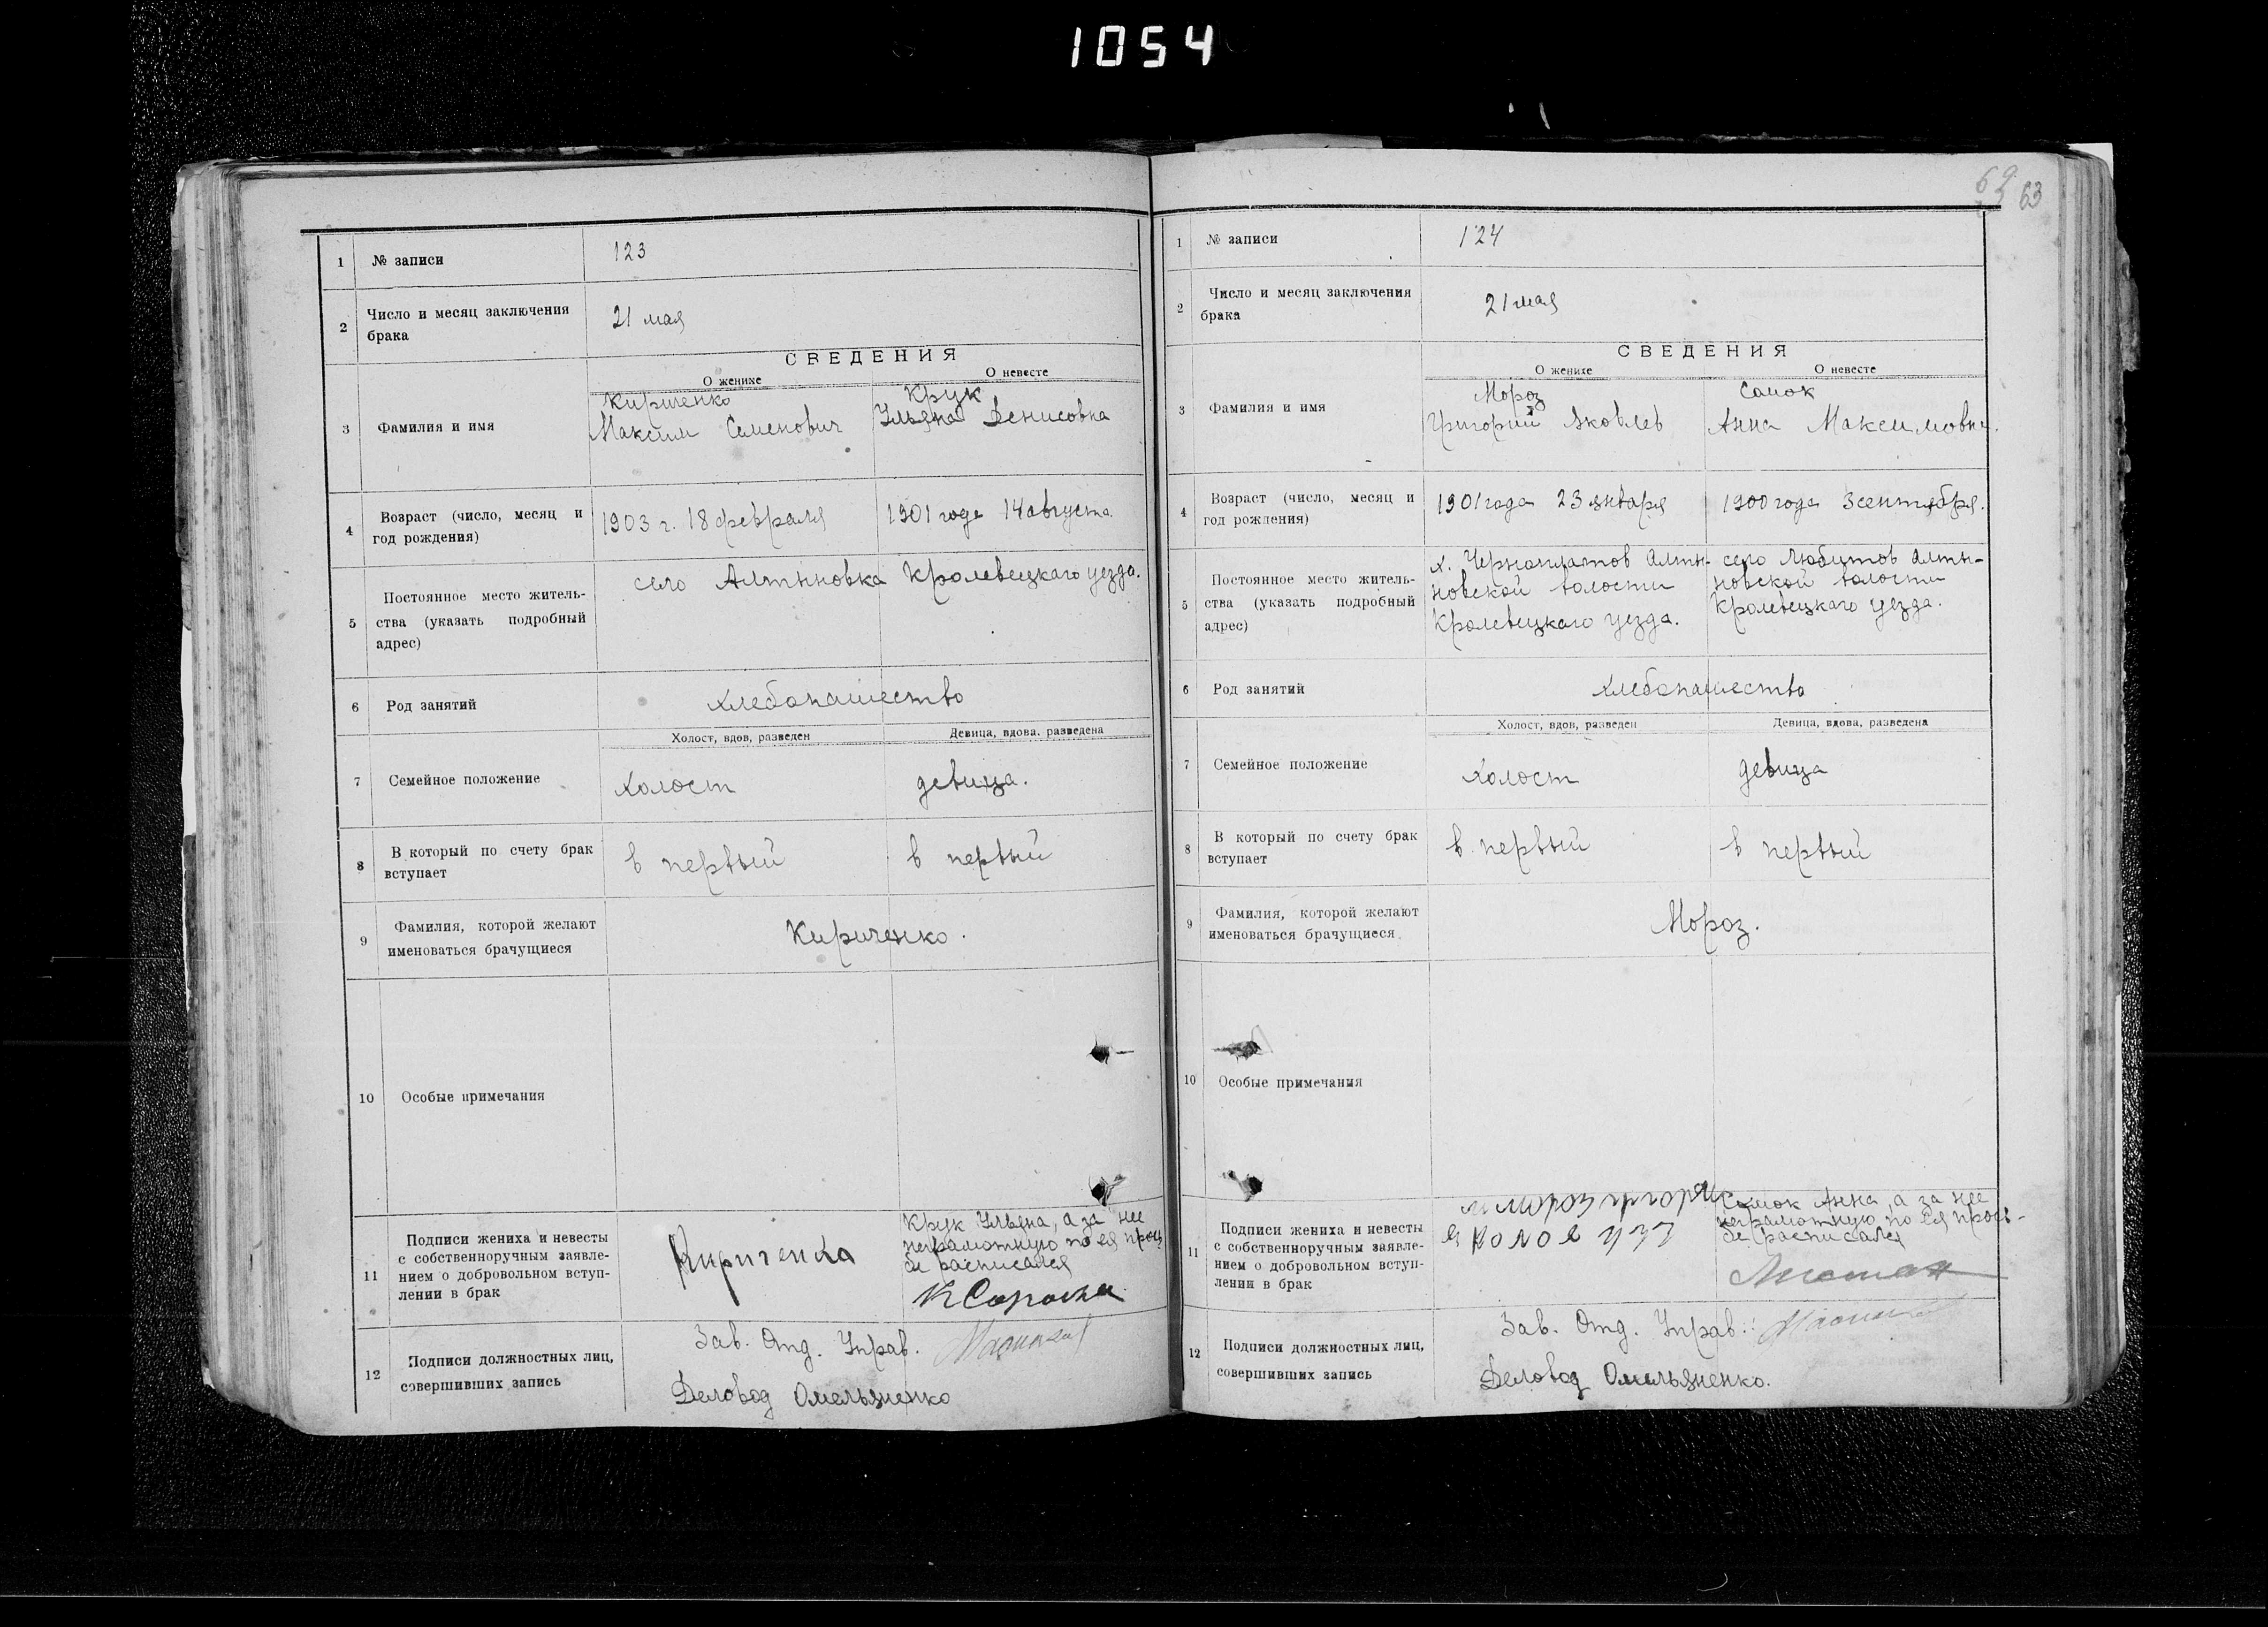 1054
1 № записи 123
2 Число и месяц заключения
брака
21 мая
СВЕДЕНИЯ
О женихе О невесте
3 Фамилия и имя
Кириченко
Максим Семенович
Крук
Ульяна Денисовна
4 Возраст (число, месяц и
год рождения)
1903 г. 18 февраля
1901 года 14 августа
5 Постоянное место житель-
ства (указать подробный
адрес)
село Алтыновка Кролевецкаго уезда.
6 Род занятий
хлебопашество
7 Семейное положение
Холост, вдов, разведен Девица, вдова. разведена
холост девица.
8 В который по счету брак
вступает
в первый в первый
9 Фамилия, которой желают
именоваться брачущиеся
Кириченко.
10 Особые примечания
11 Подписи жениха и невесты
с собственноручным заявле-
нием о добровольном вступ-
лении в брак
Кириченко
Крук Ульяна, а за нее
неграмотную по ея прось
бе расписался
К Сорока
12 Подписи должностных лиц,
совершивших запись
Зав. Отд. Управ.
Деловод Омельяненко
63
1 № записи 124
2 Число и месяц заключения
брака
21 мая
СВЕДЕНИЯ
О женихе О невесте
3 Фамилия и имя
Мороз
Григорий Яковлев
Самок
Анна Максимовна.
4 Возраст (число, месяц и
год рождения)
1901 года 23 января
1900 года 3 сентября.
5 Постоянное место житель-
ства (указать подробный
адрес)
х. Черноплатов Алты-
новской волости
Кролевецкаго уезда.
село Любитов Алты-
новской волости
Кролевецкаго уезда.
6 Род занятий
хлебопашество
7 Семейное положение
Холост, вдов, разведен Девица, вдова, разведена
холост девица
8 В который по счету брак
вступает
в первый в первый
9 Фамилия, которой желают
именоваться брачущиеся
Мороз.
10 Особые примечания
11 Подписи жениха и невесты
с собственноручным заявле-
нием о добровольном вступ-
лении в брак
Самок Анна, а за нее
неграмотную по ея прось-
бе расписался
12 Подписи должностных лиц,
совершивших запись
Зав. Отд. Управ.:
Деловод Омельяненко.